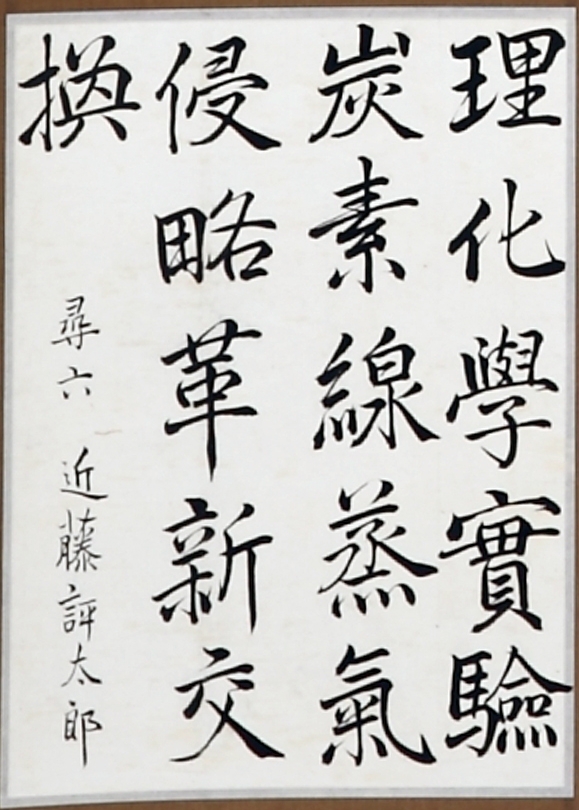 理化學實驗
炭素線蒸氣
侵略革新交
換
尋六 近藤評太郎